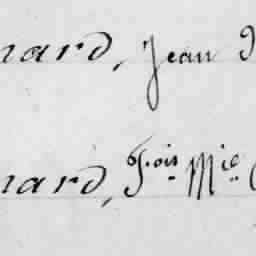 nard, Jean
nard, F.ois M.ie